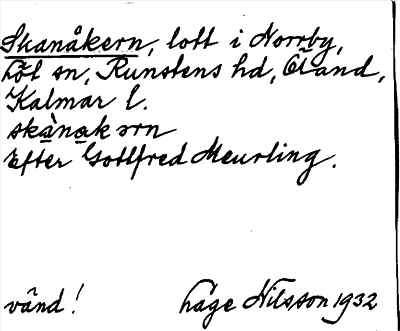 Skanåkern, lott i Norrby,
Löt sn, Runstens hd, Öland,
Kalmar l.
skànakɔrn
Efter Gottfred Meurling.
vänd! Åke Nilsson 1932